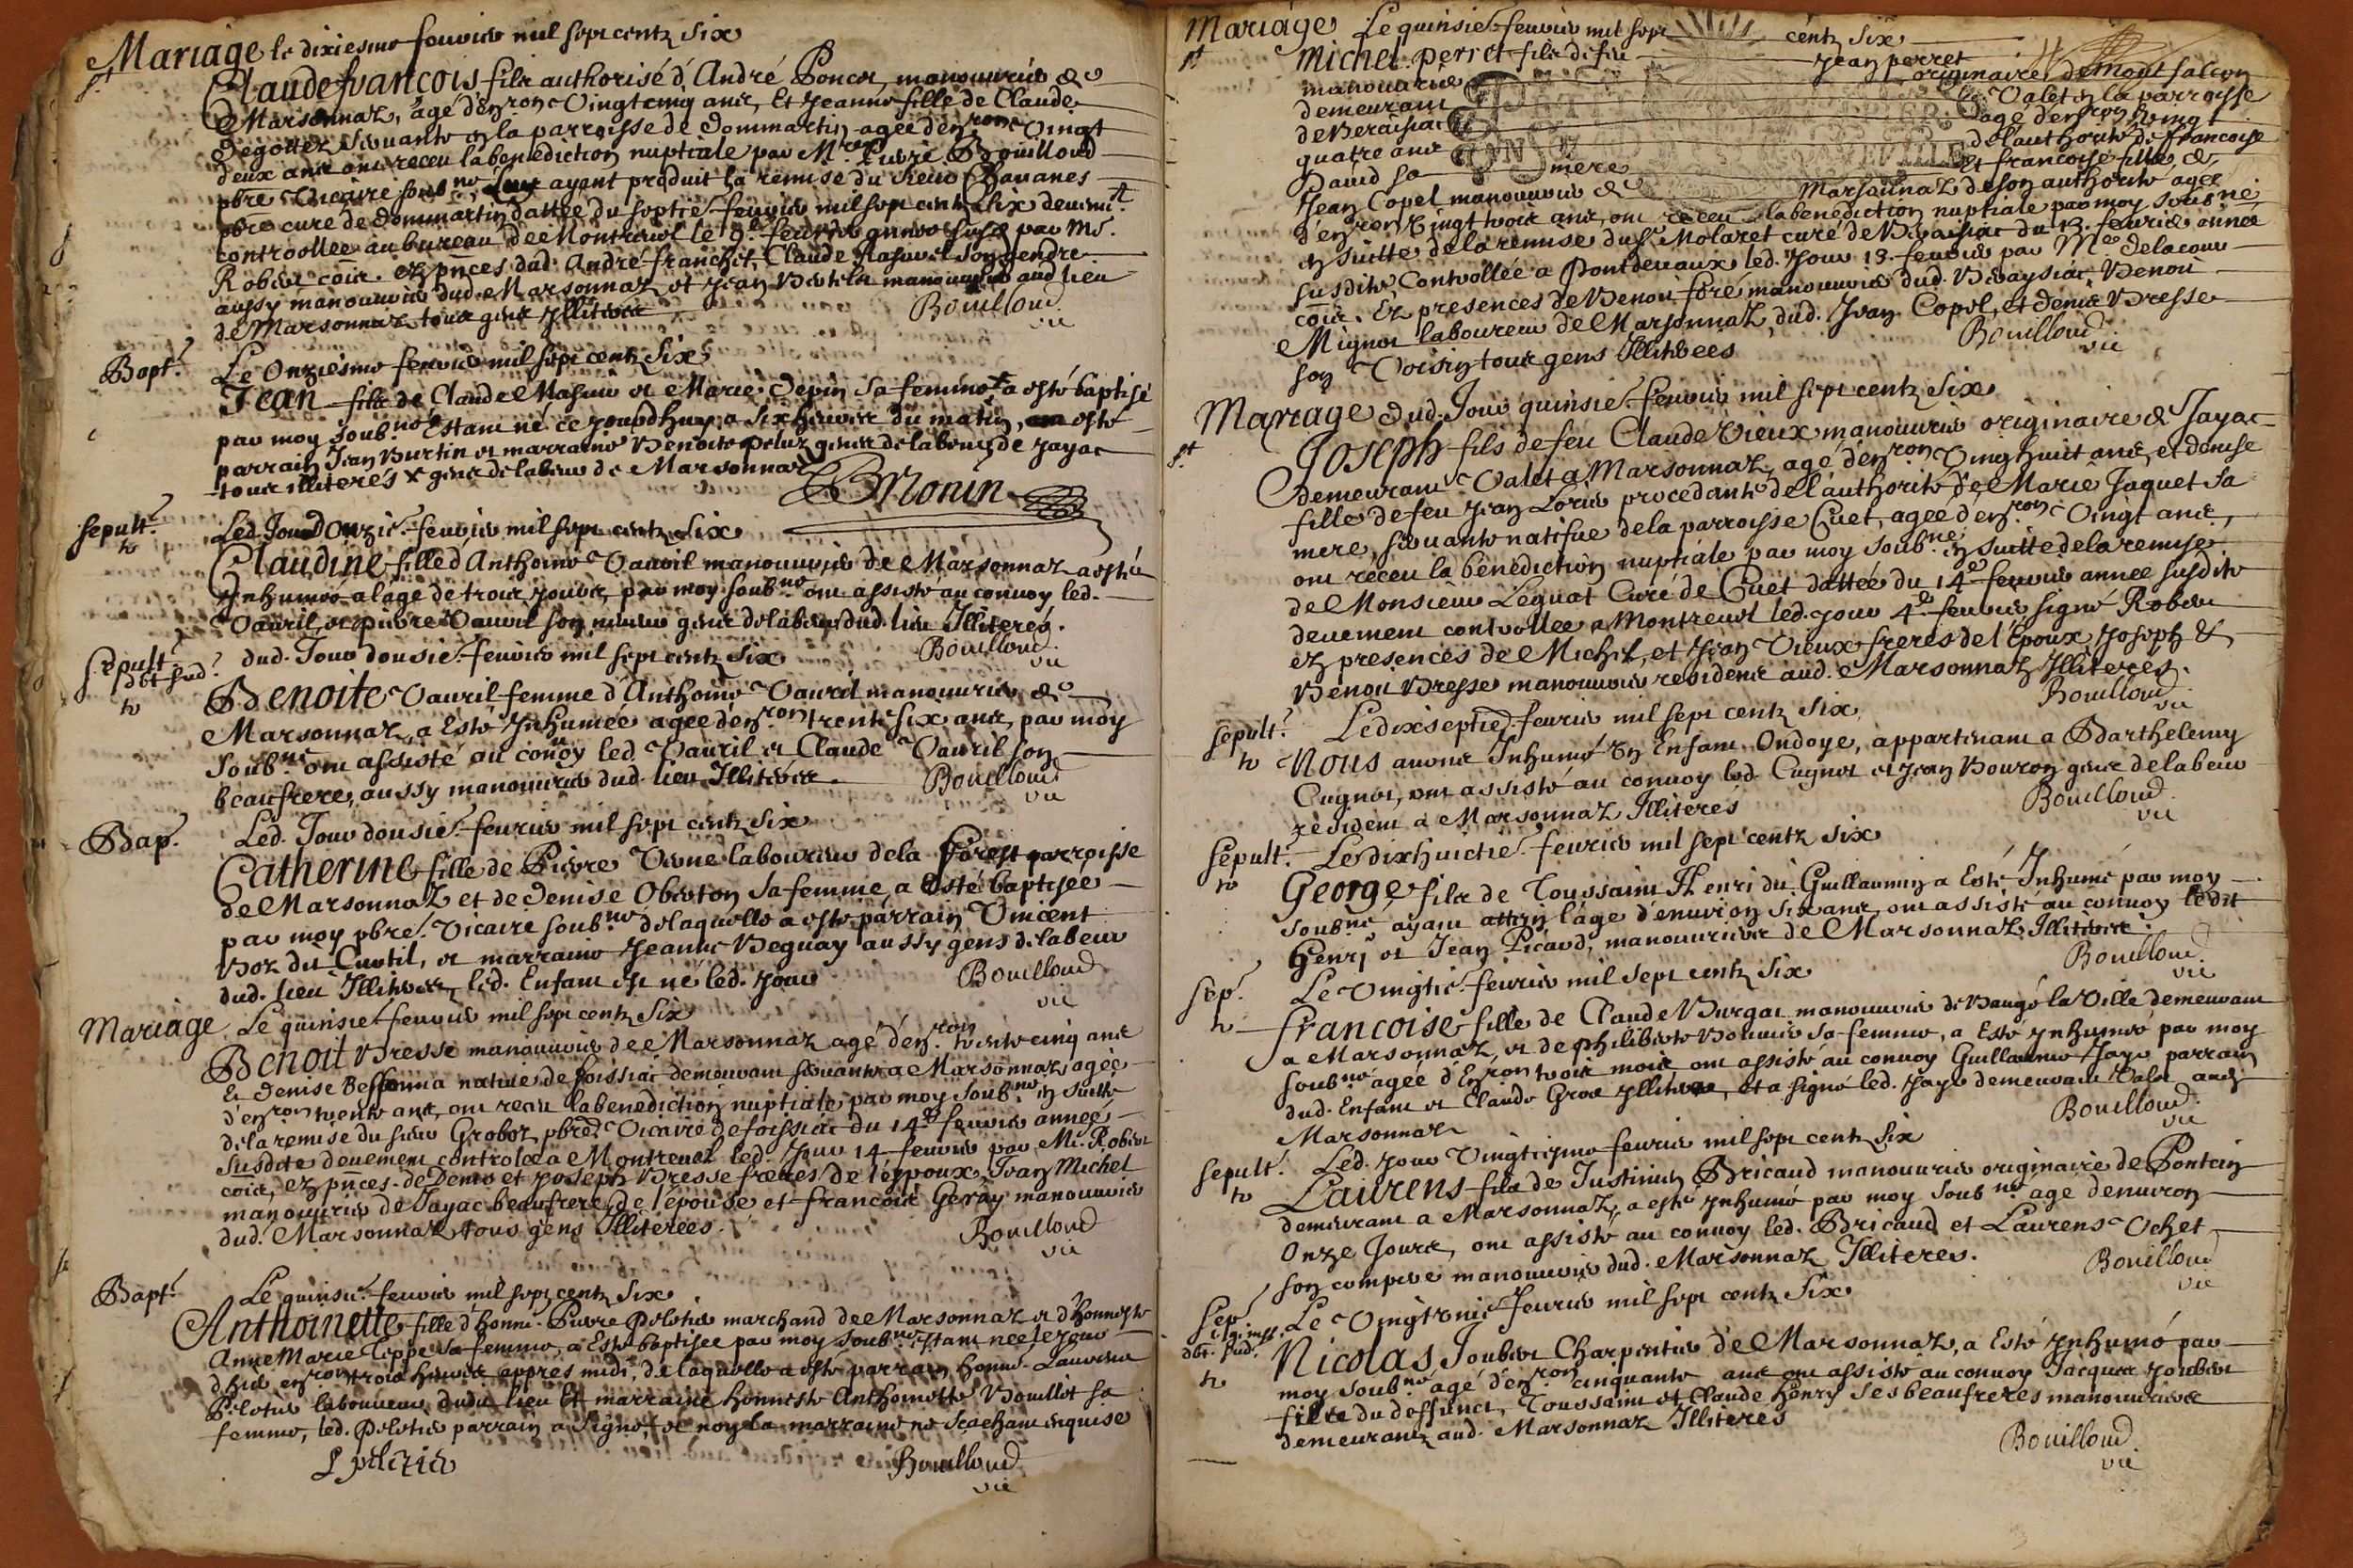 Mariage le dixiesme fevrier mil sept centz Six
Claude francois fils authorisé d'André Poncet, manouvrier de
Marsonnaz, agé d'environ Vingt cinq ans, et Jeanne fille de Claude
Degottex Servante en la parroisse de dommartin agée d'environ Vingt
deux ans ont receu la benediction nuptiale par Mre Pierre Bouilloud
pbre Vicaire soubné, ayant produit la remise du sieur Chavanes
pbre curé de dommartin dattée du septie fevrier mil sept centz Six deuemt
controollée au bureau de Montrevel le 9e fevrier année susd par Mr.
Robert coir. ez pnces dud. André franchet, Claude Rasurel Son gendre
aussy manouvrier dud. Marsonnaz et Jean manouvrier aud lieu
de Marsonnaz tous gens Illiterés
Bouilloud
vic
Bapt. Le Onziesme fevrier mil sept centz Six
Jean fils de Claude Masuir et Marie Depin sa femme a esté baptisé
par moy soubné Estant né ce jourdhuy a Six heures du matin, a esté
parrain Jean Burtin et marraine Benoite Peluz gens de labeur de Jayac
tous illiterés & gens de labeur de Marsonnaz
Monin
Sepult. Led. Jour Onzie. fevrier mil sept centz Six
Claudine fille d'Anthoine Vauril manouvrier de Marsonnaz a esté
Inhumée a l'age de trois jours, par moy soubné ont assisté au convoy led.
Vauril, et pierre Vauril son neveu gens de labeur dud. lieu Illiterés.
Bouilloud
vic
Sepult dud. Jour dousie. fevrier mil sept centz Six
Benoite Vauril femme d'Anthoine Vauril manouvrier de
Marsonnaz, a Esté Inhumée agée d'environ trente Six ans, par moy
Soubné ont assisté au convoy led. Vauril et Claude Vauril son
beaufrere, aussy manouvrier dud. lieu Illiterés
Bouilloud
vic
Bap. Led. Jour dousie. fevrier mil sept centz Six
Catherine fille de Pierre Vione laboureur de la Forest parroisse
de Marsonnaz et de Denise Oberton Sa femme, a Esté baptisée
par moy pbre. Vicaire soubné de laquelle a esté parrain Vincent
Boz du Curtil, et marraine Jeanne Beguay aussy gens de labeur
dud. lieu Illiterés, led. Enfant est né led. Jour
Bouilloud
vic
Mariage Le quinsie fevrier mil sept centz Six
Benoit Bresse manouvrier de Marsonnaz agé d'environ trente cinq ans
Et Denise Bessonna native de foissiac demeurant servante a Marsonnaz agée
d'environ trente ans, ont receu la benediction nuptiale par moy soubné en suitte
de la remise du sieur Groboz pbre. Vicaire de foissiac du 14e fevrier année
susdite deuement controlée a Montrevel led. Jour 14 fevrier par Mr. Robert
coir, ez pnces de Denis et Joseph Bresse freres de l'époux, Jean Michel
manouvrier de Jayac beaufrere de l'épouse et francois Geray manouvrier
dud. Marsonnaz tous gens Illiterées.
Bouilloud
vic
Bapt. Le quinsie. fevrier mil sept centz Six
Anthoinette fille d'honne. Pierre Peletier marchand de Marsonnaz et d'honneste
Anne Marie Teppe Sa femme, a Esté baptisée par moy soubné Estant née le jour
d'hier environ trois heures appres midi, de laquelle a esté parrain honne. Laurens
Peletier laboureur dudit lieu Et marraine honneste Anthoinette Bouillot sa
femme, led. Peletier parrain a Signé, et non la marraine ne Scachant enquise
L peletier
Bouilloud
vic
Mariage Le quinsie fevrier mil sept centz Six
Michel Perret fils de feu Jean perret
manouvrier originaire de Montfalcon
demeurant Valet en la parroisse
de Beraisiat agé d'environ Vingt
quatre ans de l'authorité de francoise
David sa mere Et francoise fille de
Jean Copel manouvrier de Marsonnaz de son authorité agée
d'environ Vingt trois ans, ont receu la benediction nuptiale par moy soubné
en suitte de la remise du Sr Molaret curé de Beraisiat du 13. fevrier année
susdite Controllée a Pontdevaux led. Jour 13. fevrier par Me Delacour
coir. Ez presences de Benoit foré manouvrier dud. Beraysiat Benoit
Mignot laboureur de Marsonnaz, dud. Jean Copel, et Denis Bresse
son Voisin tous gens Illiterées
Bouilloud
vic
Mariage Dud. Jour quinsie. fevrier mil sept centz Six
Joseph fils de feu Claude Vieux manouvrier originaire de Jayac
demeurant Valet a Marsonnaz, agé d'environ Vingt huict ans, et denise
fille de feu Jean Lorin procedante de l'authorité de Marie Jaquet sa
mere, servante natifve de la parroisse Cuet, agée d'environ Vingt ans,
ont receu la benediction nuptiale par moy soubné en suitte de la remise
de Monsieur Leguat Curé de Cuet dattée du 14e fevrier année susdite
deuement controllée a Montrevel led. jour 4e fevrier signé Robert
ez presences de Michel, et Jean Vieux freres de l'Epoux Joseph &
Benoit Bresse manouvrier residens aud. Marsonnaz Illiterés.
Bouilloud
vic
Sepult. Le dixseptie. fevrier mil sept centz Six
Nous avons Inhumé Un Enfant Ondoyé, appartenant a Barthelemy
Cugnet, ont assisté au convoy led. Cugnet et Jean Bouron gens de labeur
residens a Marsonnaz Illiterés
Bouilloud
vic
Sepult. Le dixhuictie. fevrier mil sept centz Six
George fils de Toussaint Henri du Guillaumin a Esté Inhumé par moy
soubné ayant atten l'age d'environ Six ans, ont assisté au convoy ledit
Henry et Jean Picard, manouvriers de Marsonnaz, Illiterés.
Bouilloud
vic
Sep. Le Vingtie. fevrier mil sept centz Six
francoise fille de Claude Burgat manouvrier de Baugé la Ville demeurant
a Marsonnaz, et de philiberte Bouvier sa femme, a Esté Inhumée par moy
soubné agée d'Environ trois mois ont assisté au convoy Guillaume Jayr parrain
dud. Enfant et Claude Gros Illiteré, et a signé led. Jayr demeurant Valet aud
Marsonnaz
Bouilloud
vic
Sepult. Led. jour Vingtiesme fevrier mil sept centz Six
Laurens fils de Justinien Bricaud manouvrier originaire de Poncin
demeurant a Marsonnaz, a esté Inhumé par moy soubné agé denviron
Onze Jours, ont assisté au convoy led. Bricaud et Laurens Ochet
son compere manouvrier dud. Marsonnaz Illiterés.
Bouilloud
vic
Sep Le Vingt unie fevrier mil sept centz Six
Nicolas Joubert Charpentier de Marsonnaz, a Esté Inhumé par
moy soubné agé d'environ cinquante ans ont assisté au convoy Jacques Joubert
fils du deffunct, Toussaint et Claude Henry Ses beaufreres manouvriers
demeurantz aud. Marsonnaz Illiterés
Bouilloud
vic